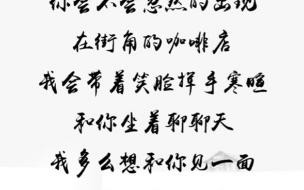 你会不会忽然的出现
在街角的咖啡店
我会带着笑脸挥手寒暄
和你坐着聊聊天
我多么想和你见一面